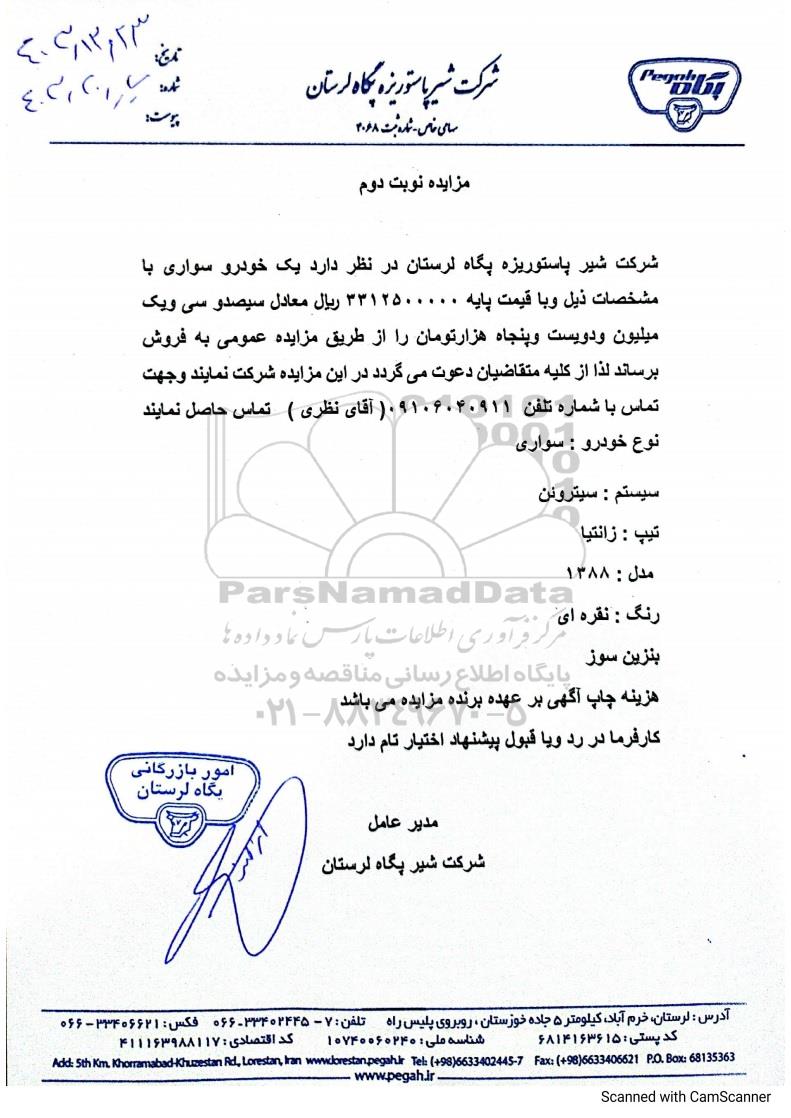 تاریخ:
شماره:
پیوست:
شرکت شیر پاستوریزه پگاه لرستان
سهامی خاص - شماره ثبت ۲۰۶۸
Pegah
پگاه
مزایده نوبت دوم
شرکت شیر پاستوریزه پگاه لرستان در نظر دارد یک خودرو سواری با
مشخصات ذیل وبا قیمت پایه ۳۳۱۲۵۰۰۰۰۰ ریال معادل سیصدو سی ویک
میلیون ودویست وپنجاه هزارتومان را از طریق مزایده عمومی به فروش
برساند لذا از کلیه متقاضیان دعوت می گردد در این مزایده شرکت نمایند وجهت
تماس با شماره تلفن ۰۹۱۰۶۰۴۰۹۱۱( آقای نظری ) تماس حاصل نمایند
نوع خودرو : سواری
سیستم : سیترونن
تیپ : زانتیا
مدل : ۱۳۸۸
ParsNamadData
رنگ : نقره ای
مرکز فرآوری اطلاعات پارس نماد داده ها
بنزین سوز
پایگاه اطلاع رسانی مناقصه و مزایده
هزینه چاپ آگهی بر عهده برنده مزایده می باشد
۰۲۱-۸۸۳۴۹۶۷۰-۵
کارفرما در رد ویا قبول پیشنهاد اختیار تام دارد
امور بازرگانی
پگاه لرستان
مدیر عامل
شرکت شیر پگاه لرستان
آدرس : لرستان، خرم آباد، کیلومتر ۵ جاده خوزستان ، روبروی پلیس راه تلفن : ۷-۰۶۶-۳۳۴۰۲۴۴۵ فکس : ۳۳۴۰۶۶۲۱-۰۶۶
کد پستی : ۶۸۱۴۱۶۳۶۱۵ شناسه ملی : ۱۰۷۴۰۰۶۰۲۴۰ کد اقتصادی : ۴۱۱۱۶۳۹۸۸۱۱۷
Add: 5th Km. Khorramabad-Khuzestan Rd., Lorestan, Iran www.lorestan.pegah.ir Tel: (+98)6633402445-7 Fax: (+98)6633406621 P.O. Box: 68135363
www.pegah.ir
Scanned with CamScanner